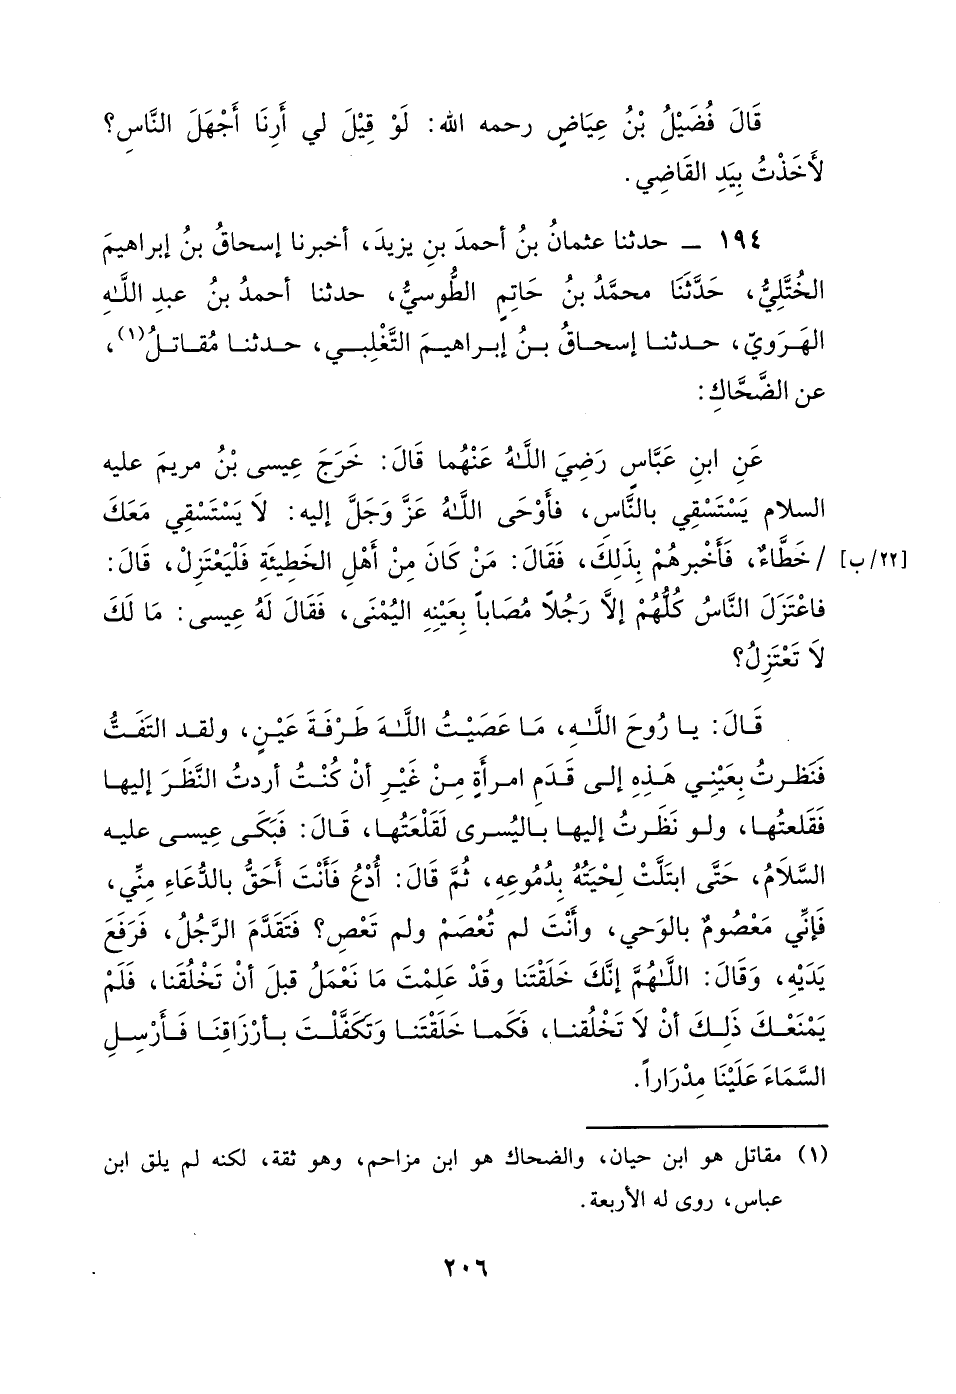 قَالَ فُضَيْلُ بْنُ عِيَاضٍ رحمه الله: لَوْ قِيْلَ لي أَرِنَا أَجْهَلَ النَّاسِ؟
لأَخَذْتُ بِيَدِ القَاضِي.
١٩٤ ــ حدثنا عثمانُ بنُ أحمدَ بنِ يزيدَ، أخبرنا إسحاقُ بنُ إبراهيمَ
الخُتَّلِيُّ، حَدَّثَنَا محمَّدُ بنُ حَاتِمٍ الطُّوسيُّ، حدثنا أحمدُ بنُ عبدِ اللَّهِ
الهَرَوِيّ، حدثنا إسحاقُ بنُ إبراهيمَ التَّغْلِبي، حدثنا مُقاتلُ(١)،
عن الضَّحَّاكِ:
عَنِ ابنِ عَبَّاسٍ رَضِيَ اللَّهُ عَنْهُما قَالَ: خَرَجَ عِيسى بْنُ مريمَ عليه
السلام يَسْتَسْقِي بالنَّاسِ، فأَوْحَى اللَّهُ عَزَّ وَجَلَّ إليه: لاَ يَسْتَسْقِي مَعَكَ
[٢٢/ب] /خَطَّاءٌ، فَأَخْبرهُمْ بِذَلِكَ، فَقَالَ: مَنْ كَانَ مِنْ أَهْلِ الخَطِيئَةِ فَلْيَعْتَزِلْ، قَالَ:
فاعْتَزَلَ النَّاسُ كُلُّهُمْ إلاَّ رَجُلاً مُصَاباً بِعَيْنِهِ اليُمْنَى، فَقَالَ لَهُ عِيسى: مَا لَكَ
لاَ تَعْتَزِلُ؟
قَالَ: يا رُوحَ اللَّهِ، مَا عَصَيْتُ اللَّهَ طَرْفَةَ عَيْنٍ، ولقد التَفَتُّ
فَنَظرتُ بِعَيْنِي هَذِهِ إلى قَدَمِ امرأَةٍ مِنْ غَيْرِ أنْ كُنْتُ أردتُ النَّظَرَ إليها
فَقَلعتُها، ولو نَظَرتُ إليها باليُسرى لَقَلَعتُها، قَالَ: فَبَكَى عِيسى عليه
السَّلاَمُ، حَتَّى ابتَلَّتْ لِحْيَتُهُ بِدُمُوعِهِ، ثُمَّ قَالَ: أُدْعُ فَأَنْتَ أحَقُّ بالدُّعَاءِ مِنِّي،
فَإنِّي مَعْصُومٌ بالوَحي، وأَنْتَ لم تُعْصَمْ ولم تَعْصِ؟ فَتَقَدَّمَ الرَّجُلُ، فَرَفَعَ
يَدَيْهِ، وَقَالَ: اللَّهُمَّ إنَّكَ خَلَقْتَنا وقَدْ عَلِمْتَ مَا نَعْمَلُ قبلَ أنْ تَخْلُقَنا، فَلَمْ
يَمْنَعْكَ ذَلِكَ أنْ لاَ تَخْلُقنا، فَكَما خَلَقْتَنا وَتَكَفَّلْتَ بأرْزَاقِنَا فَأَرْسِلِ
السَّمَاءَ عَلَيْنَا مِدْرَاراً.
(١) مقاتل هو ابن حيان، والضحاك هو ابن مزاحم، وهو ثقة، لكنه لم يلق ابن
عباس، روى له الأربعة.
٢٠٦